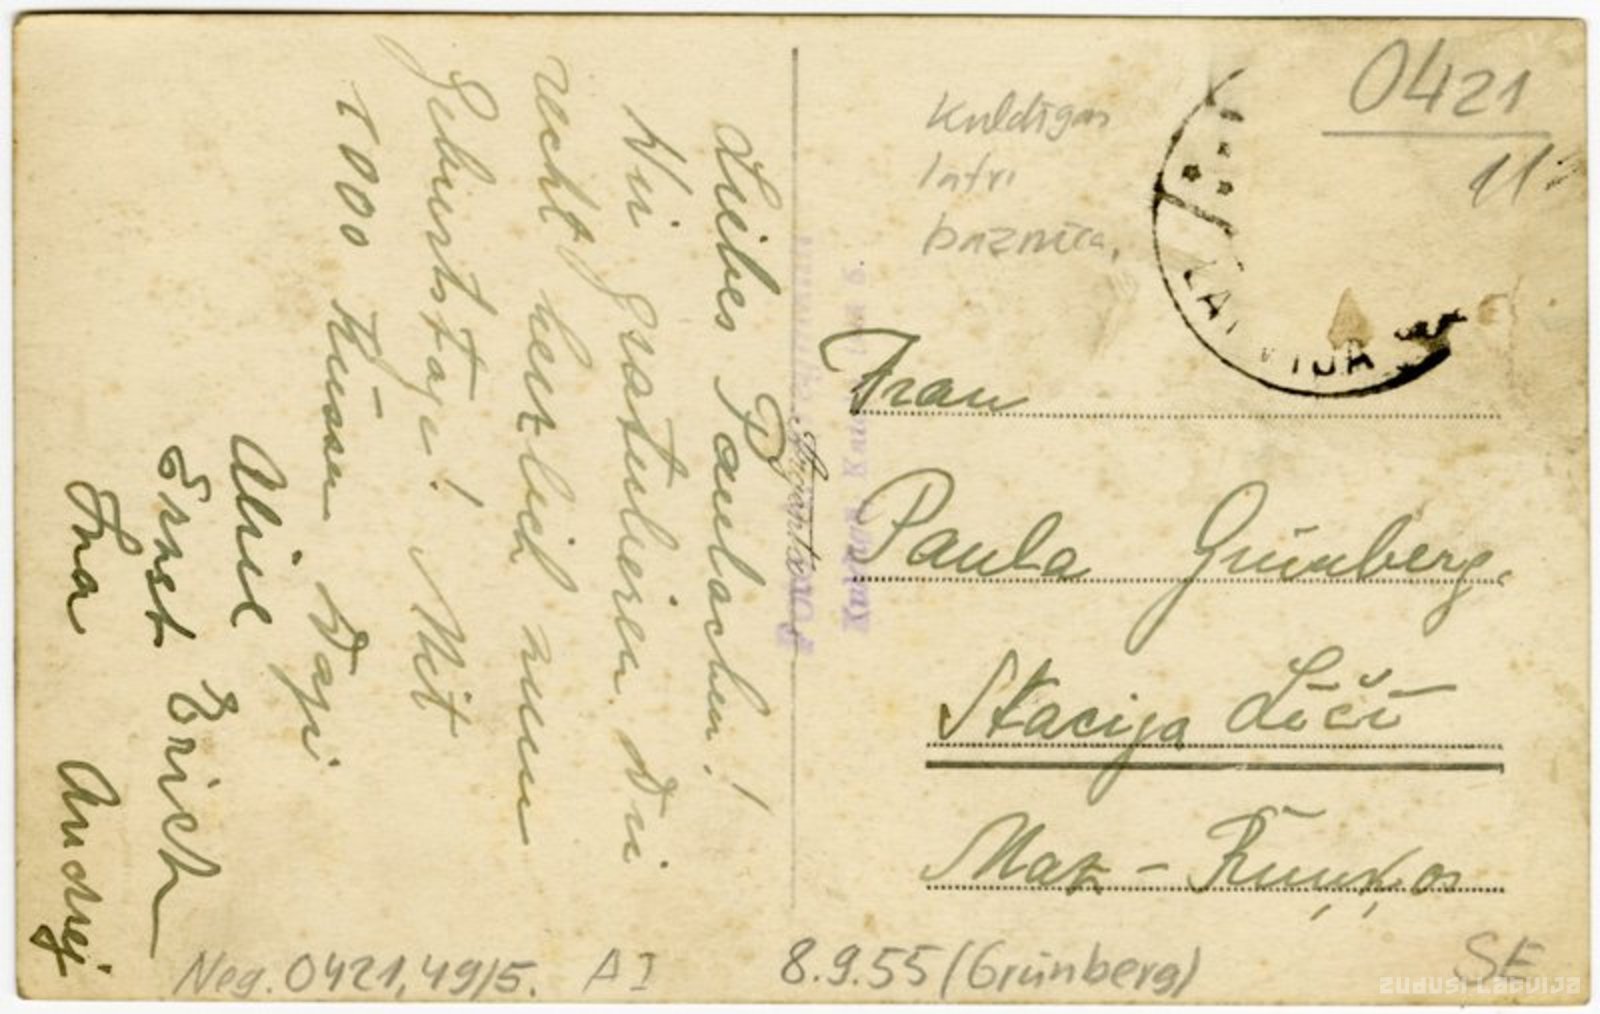 Liebes Paulachen!
Wir gratulieren Dir
recht herzlich zum
Geburtstage! Mit
1000 Küssen
Ernst Erich
Ina Andrej
0421
11
Kuldīgas
latv.
baznīca.
LATVIJA
Frau
Paula Grünberg.
Stacija Līči
Maz-Rūmņos
Neg. 0421,49/5. AI 8.9.55 (Grünberg) SE
ZUDUSI LATVIJA